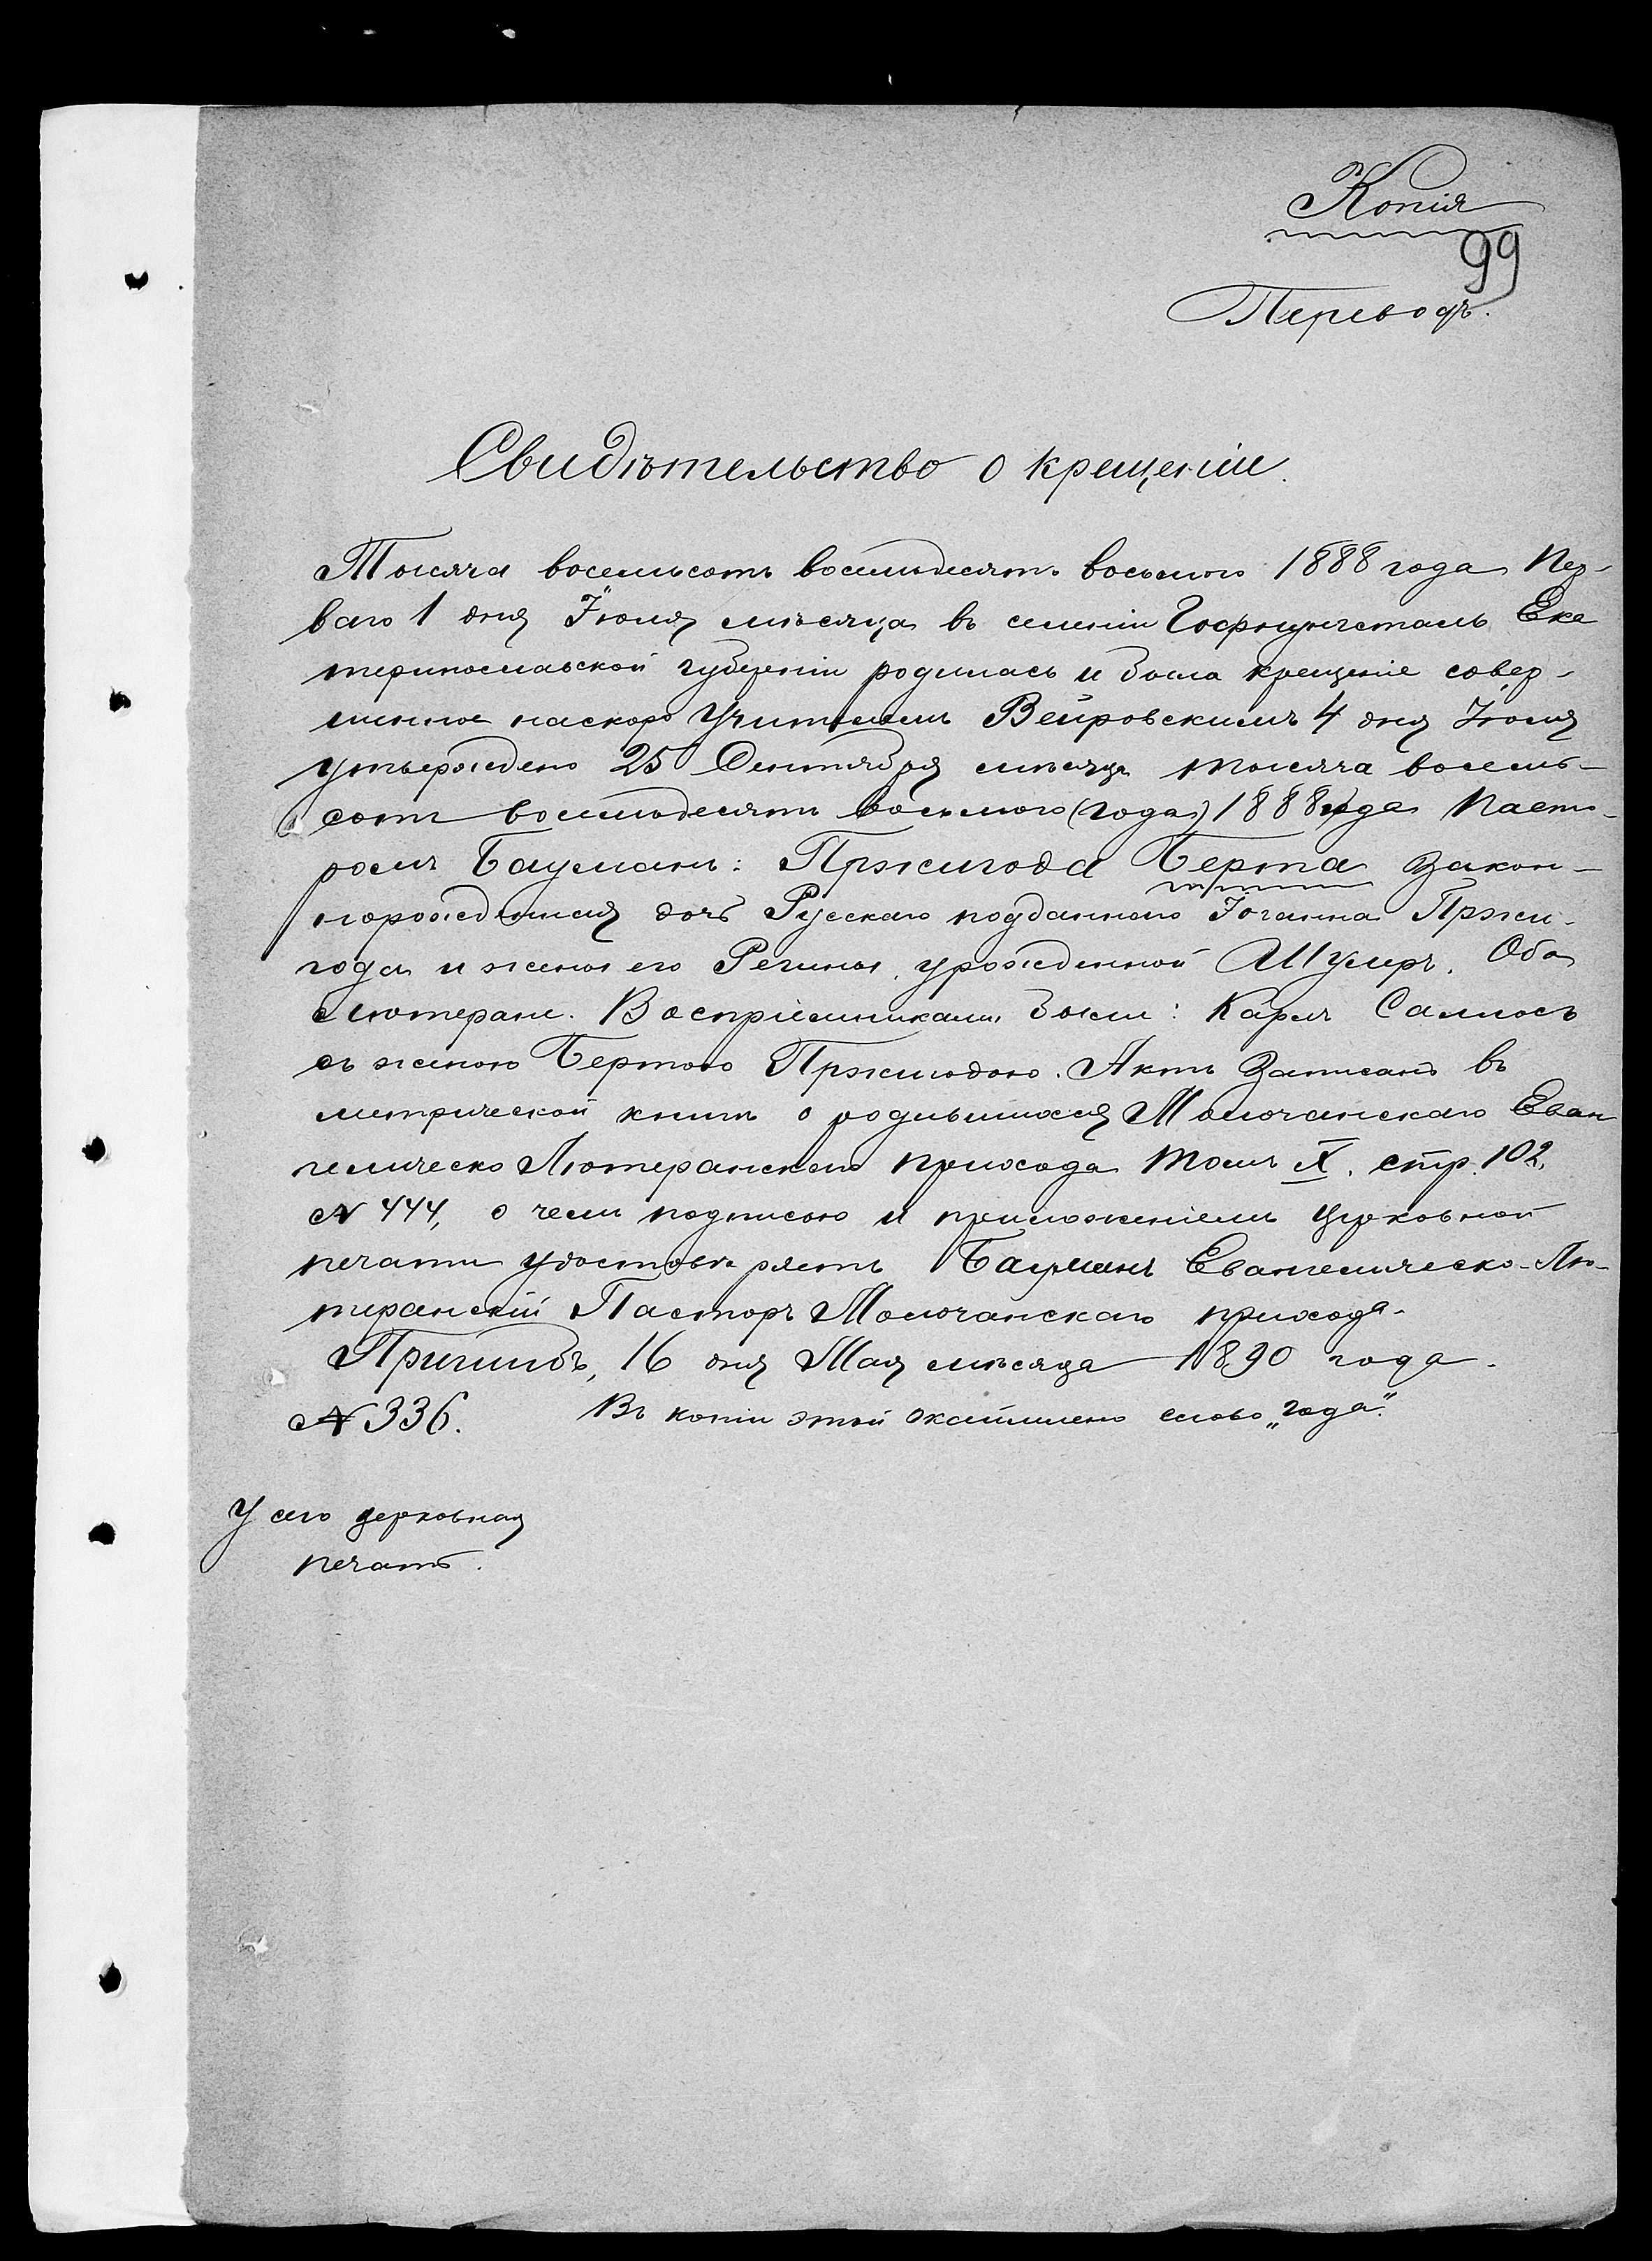 Копія
99
Переводъ.
Свидѣтельство о крещеніи.
Тысяча восемьсотъ восемьдесятъ восьмого 1888 года Пер-
ваго 1 дня Іюля мѣсяца въ селеніи Ека
теринославской губерніи родилась и было крещеніе совер-
шенное наскоро Учителемъ Вейровскимъ 4 дня Іюля
утверждено 25 Сентября мѣсяца тысяча восемь-
сотъ восемьдесятъ восьмого (года) 1888 года Пасто-
ромъ Бауманъ: Пржигода Берта закон-
норожденная дочь Русскаго подданнаго Іоганна Пржи-
года и жены его Регины, урожденной Оба
Лютеране. Воспріемниками были: Карлъ
съ женою Бертою Пржигодою. Актъ записанъ въ
метрической книгѣ о родившихся Молочанскаго Еван
гелическо Лютеранскаго прихода томъ X. стр. 102,
№ 444, о чемъ подписью и приложеніемъ церковной
печати удостовѣряетъ Бауманъ Евангелическо-Лю-
теранскій Пасторъ Молочанскаго прихода.
Пришибъ, 16 дня Мая мѣсяца 1890 года.
№ 336. Въ копіи этой окаймлено слово „года“.
У сего церковная
печать.